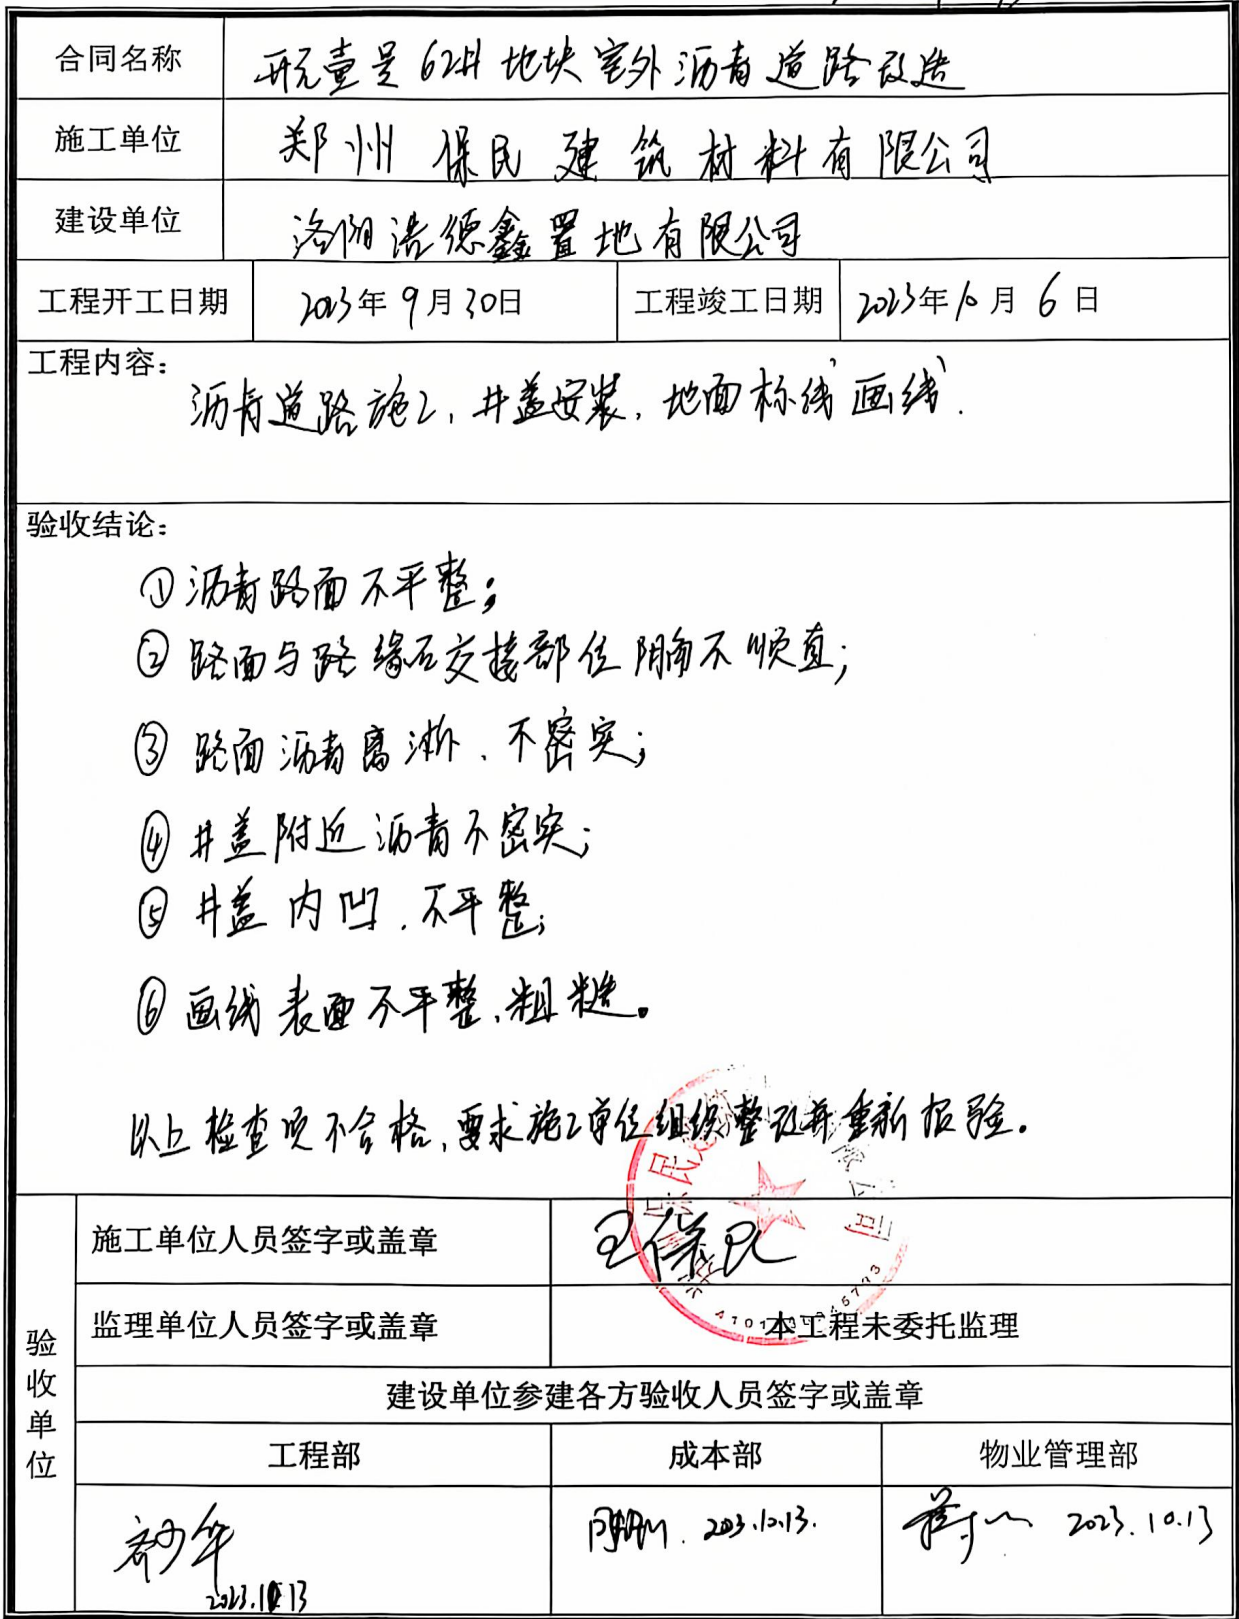 合同名称 开元壹号62#地块室外沥青道路改造
施工单位 郑州保民建筑材料有限公司
建设单位 洛阳浩德鑫置地有限公司
工程开工日期 2023年9月30日 工程竣工日期 2023年10月6日
工程内容：
沥青道路施工，井盖安装，地面标线画线.
验收结论：
①沥青路面不平整；
②路面与路缘石交接部位阴角不顺直；
③路面沥青离淅、不密实；
④井盖附近沥青不密实；
⑤井盖内凹、不平整；
⑥画线表面不平整、粗糙。
以上检查项不合格，要求施工单位组织整改并重新报验。
验收单位
施工单位人员签字或盖章 王保民
监理单位人员签字或盖章 本工程未委托监理
建设单位参建各方验收人员签字或盖章
工程部 成本部 物业管理部
2023.10.13 2023.10.13. 2023.10.13